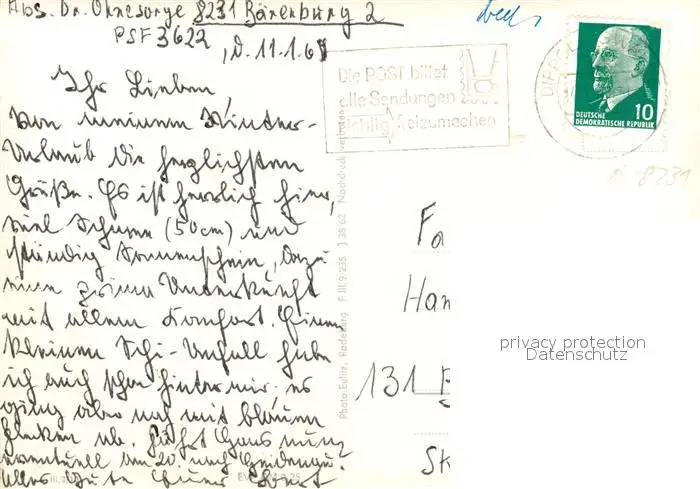 Abs. Dr. Ohnesorge 8231 Bärenburg 2
PSF 3622
D. 11.1.6
Ihr Lieben,
Von meinem Winter-
Urlaub die herzlichsten
Grüße. Es ist herrlich hier,
viel Schnee (50cm) und
ständig Sonnenschein, dazu
eine prima Unterkunft
mit allem Komfort. Einen
kleinen Schi-Unfall habe
ich auch schon hinter mir, es
ging aber noch mit blauen
Flecken ab. Fahrt Hans nun
eventuell am 20. nach
Alles Gute Euer
Die POST bittet
alle Sendungen
richtig freizumachen
DIPP
DEUTSCHE
DEMOKRATISCHE REPUBLIK
10
8231
Photo: Eulitz, Radeburg F III/9/235 J 38 62 Nachdruck verboten
Fa
Han
131
Sk
privacy protection
Datenschutz